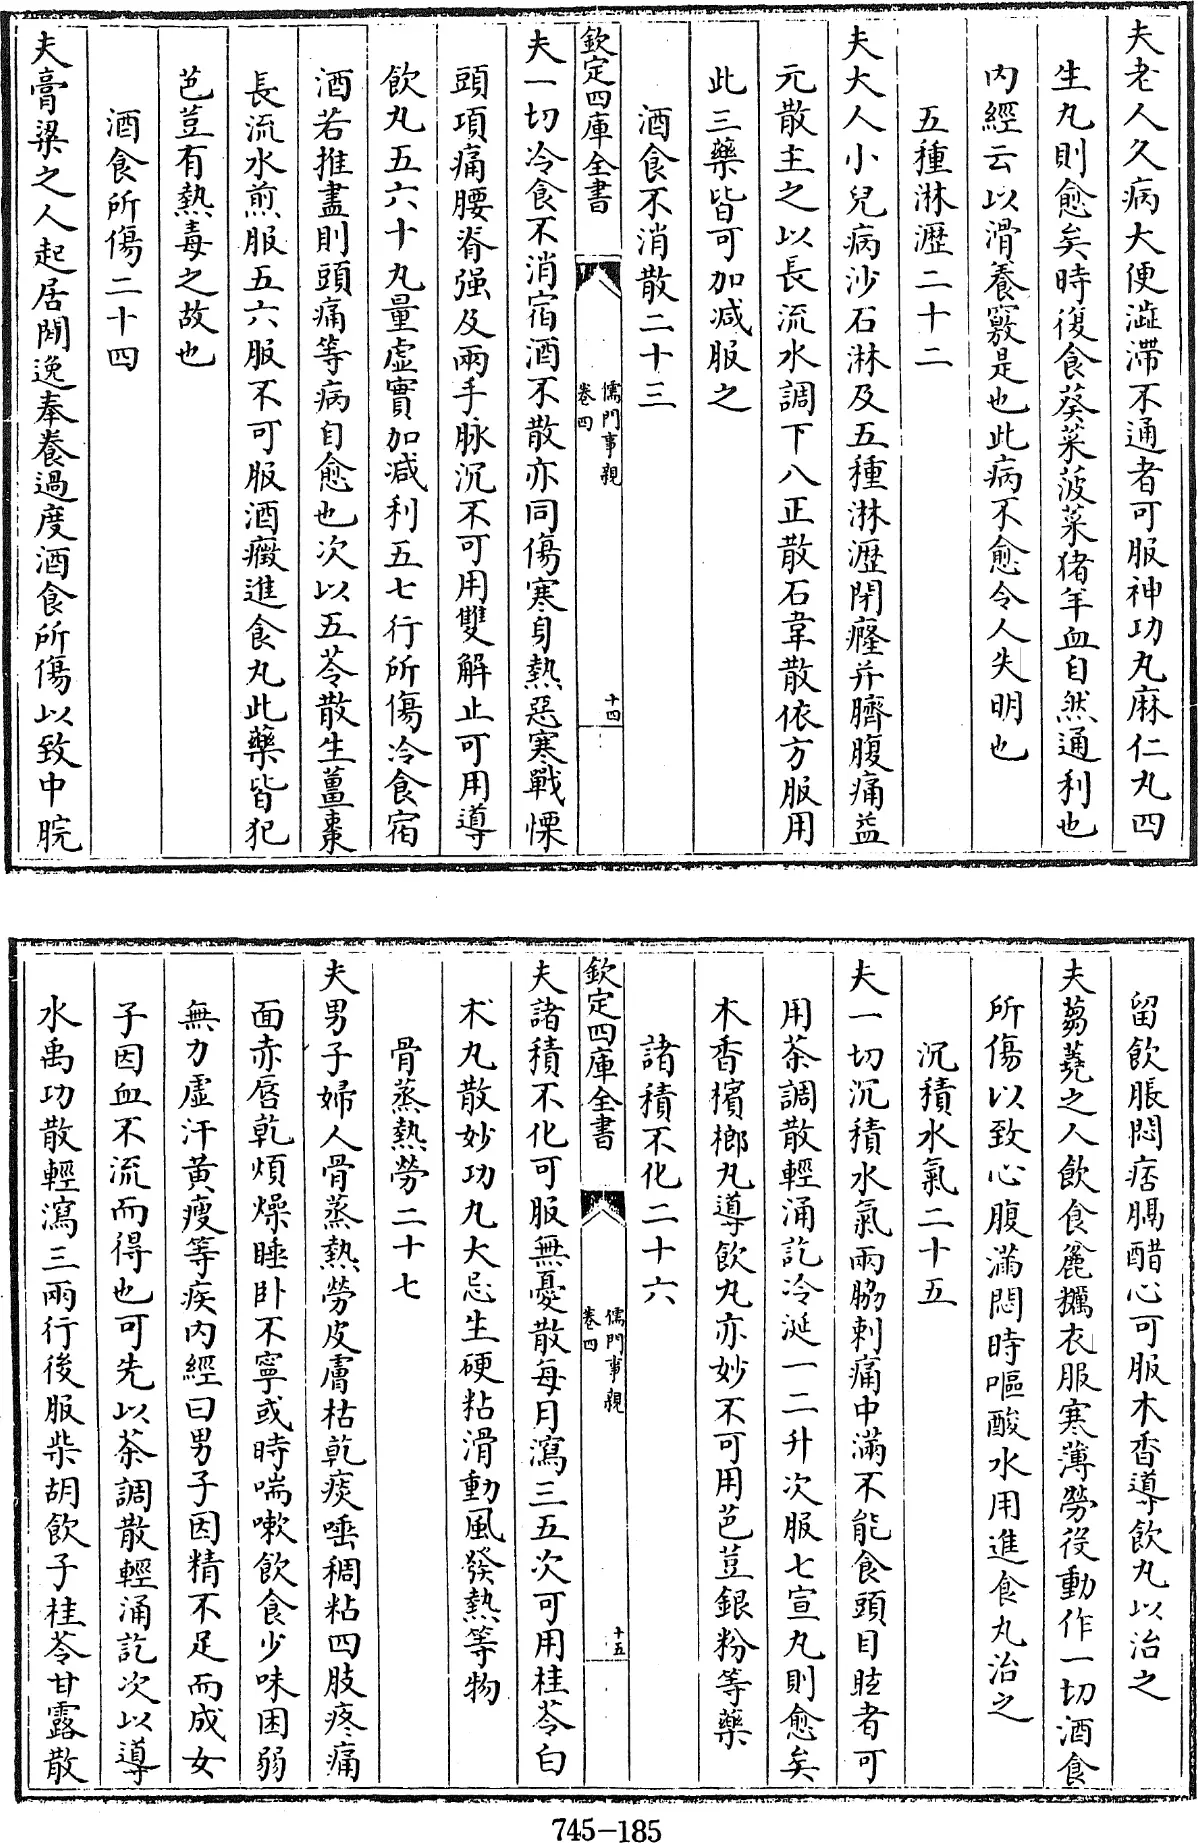 夫老人久病大便澁滯不通者可服神功丸麻仁丸四
生丸則愈矣時復食葵菜菠菜猪羊血自然通利也
內經云以滑養竅是也此病不愈令人失明也
五種淋瀝二十二
夫大人小兒病沙石淋及五種淋瀝閉癃并臍腹痛益
元散主之以長流水調下八正散石韋散依方服用
此三藥皆可加減服之
酒食不消散二十三
欽定四庫全書
儒門事親
卷四
十四
夫一切冷食不消宿酒不散亦同傷寒身熱惡寒戰慄
頭項痛腰脊强及兩手脉沉不可用雙解止可用導
飲丸五六十丸量虛實加減利五七行所傷冷食宿
酒若推盡則頭痛等病自愈也次以五苓散生薑棗
長流水煎服五六服不可服酒癥進食丸此藥皆犯
芭荳有熱毒之故也
酒食所傷二十四
夫膏粱之人起居閑逸奉養過度酒食所傷以致中脘
留飲脹悶痞膈醋心可服木香導飲丸以治之
夫芻蕘之人飲食麄糲衣服寒薄勞役動作一切酒食
所傷以致心腹滿悶時嘔酸水用進食丸治之
沉積水氣二十五
夫一切沉積水氣兩脇刺痛中滿不能食頭目眩者可
用茶調散輕涌訖冷涎一二升次服七宣丸則愈矣
木香檳榔丸導飲丸亦妙不可用芭荳銀粉等藥
諸積不化二十六
欽定四庫全書
儒門事親
卷四
十五
夫諸積不化可服無憂散每月瀉三五次可用桂苓白
朮丸散妙功丸大忌生硬粘滑動風發熱等物
骨蒸熱勞二十七
夫男子婦人骨蒸熱勞皮膚枯乾痰唾稠粘四肢疼痛
面赤唇乾煩燥睡卧不寧或時喘嗽飲食少味困弱
無力虛汗黃瘦等疾內經曰男子因精不足而成女
子因血不流而得也可先以茶調散輕涌訖次以導
水禹功散輕瀉三兩行後服柴胡飲子桂苓甘露散
745-185